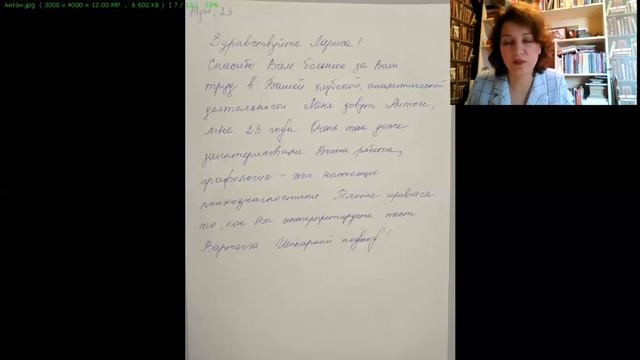 Антон.jpg ( 3000 x 4000 = 12.00 MP , 6 602 KB ) [ 7 /
Муж, 23
Здравствуйте Лариса!
Спасибо Вам большое за Ваш
труд в Вашей глубокой, аналитической
деятельности Меня зовут Антон,
мне 23 года. Очень так даже
заинтересовала Ваша работа,
графология - это настоящая
психодиагностика Также нравится
то, как Вы интерпретируете тест
Вартегга. Шикарной подход!